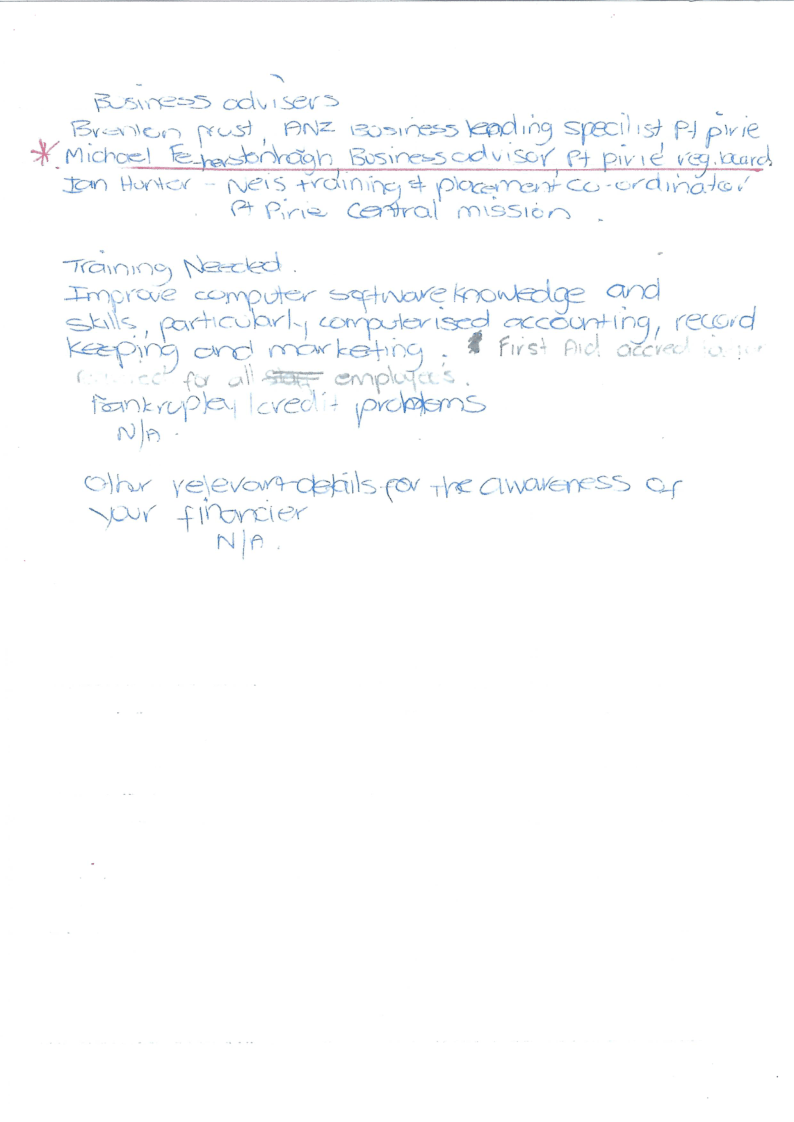 Business advisers
Brenton prust, ANZ Business lending specilist Pt pirie
* Michael Fetherstonhaugh, Business advisor, Pt pirie reg. board
Ian Hunter - Neis training & placement co-ordinator
Pt Pirie Central mission.
Training Needed.
Improve computer software knowledge and
skills, particularly computerised accounting, record
keeping and marketing. First Aid
for all employees.
Bankruptcy / credit problems
N/A.
Other relevant details for the awareness of
your financier
N/A.